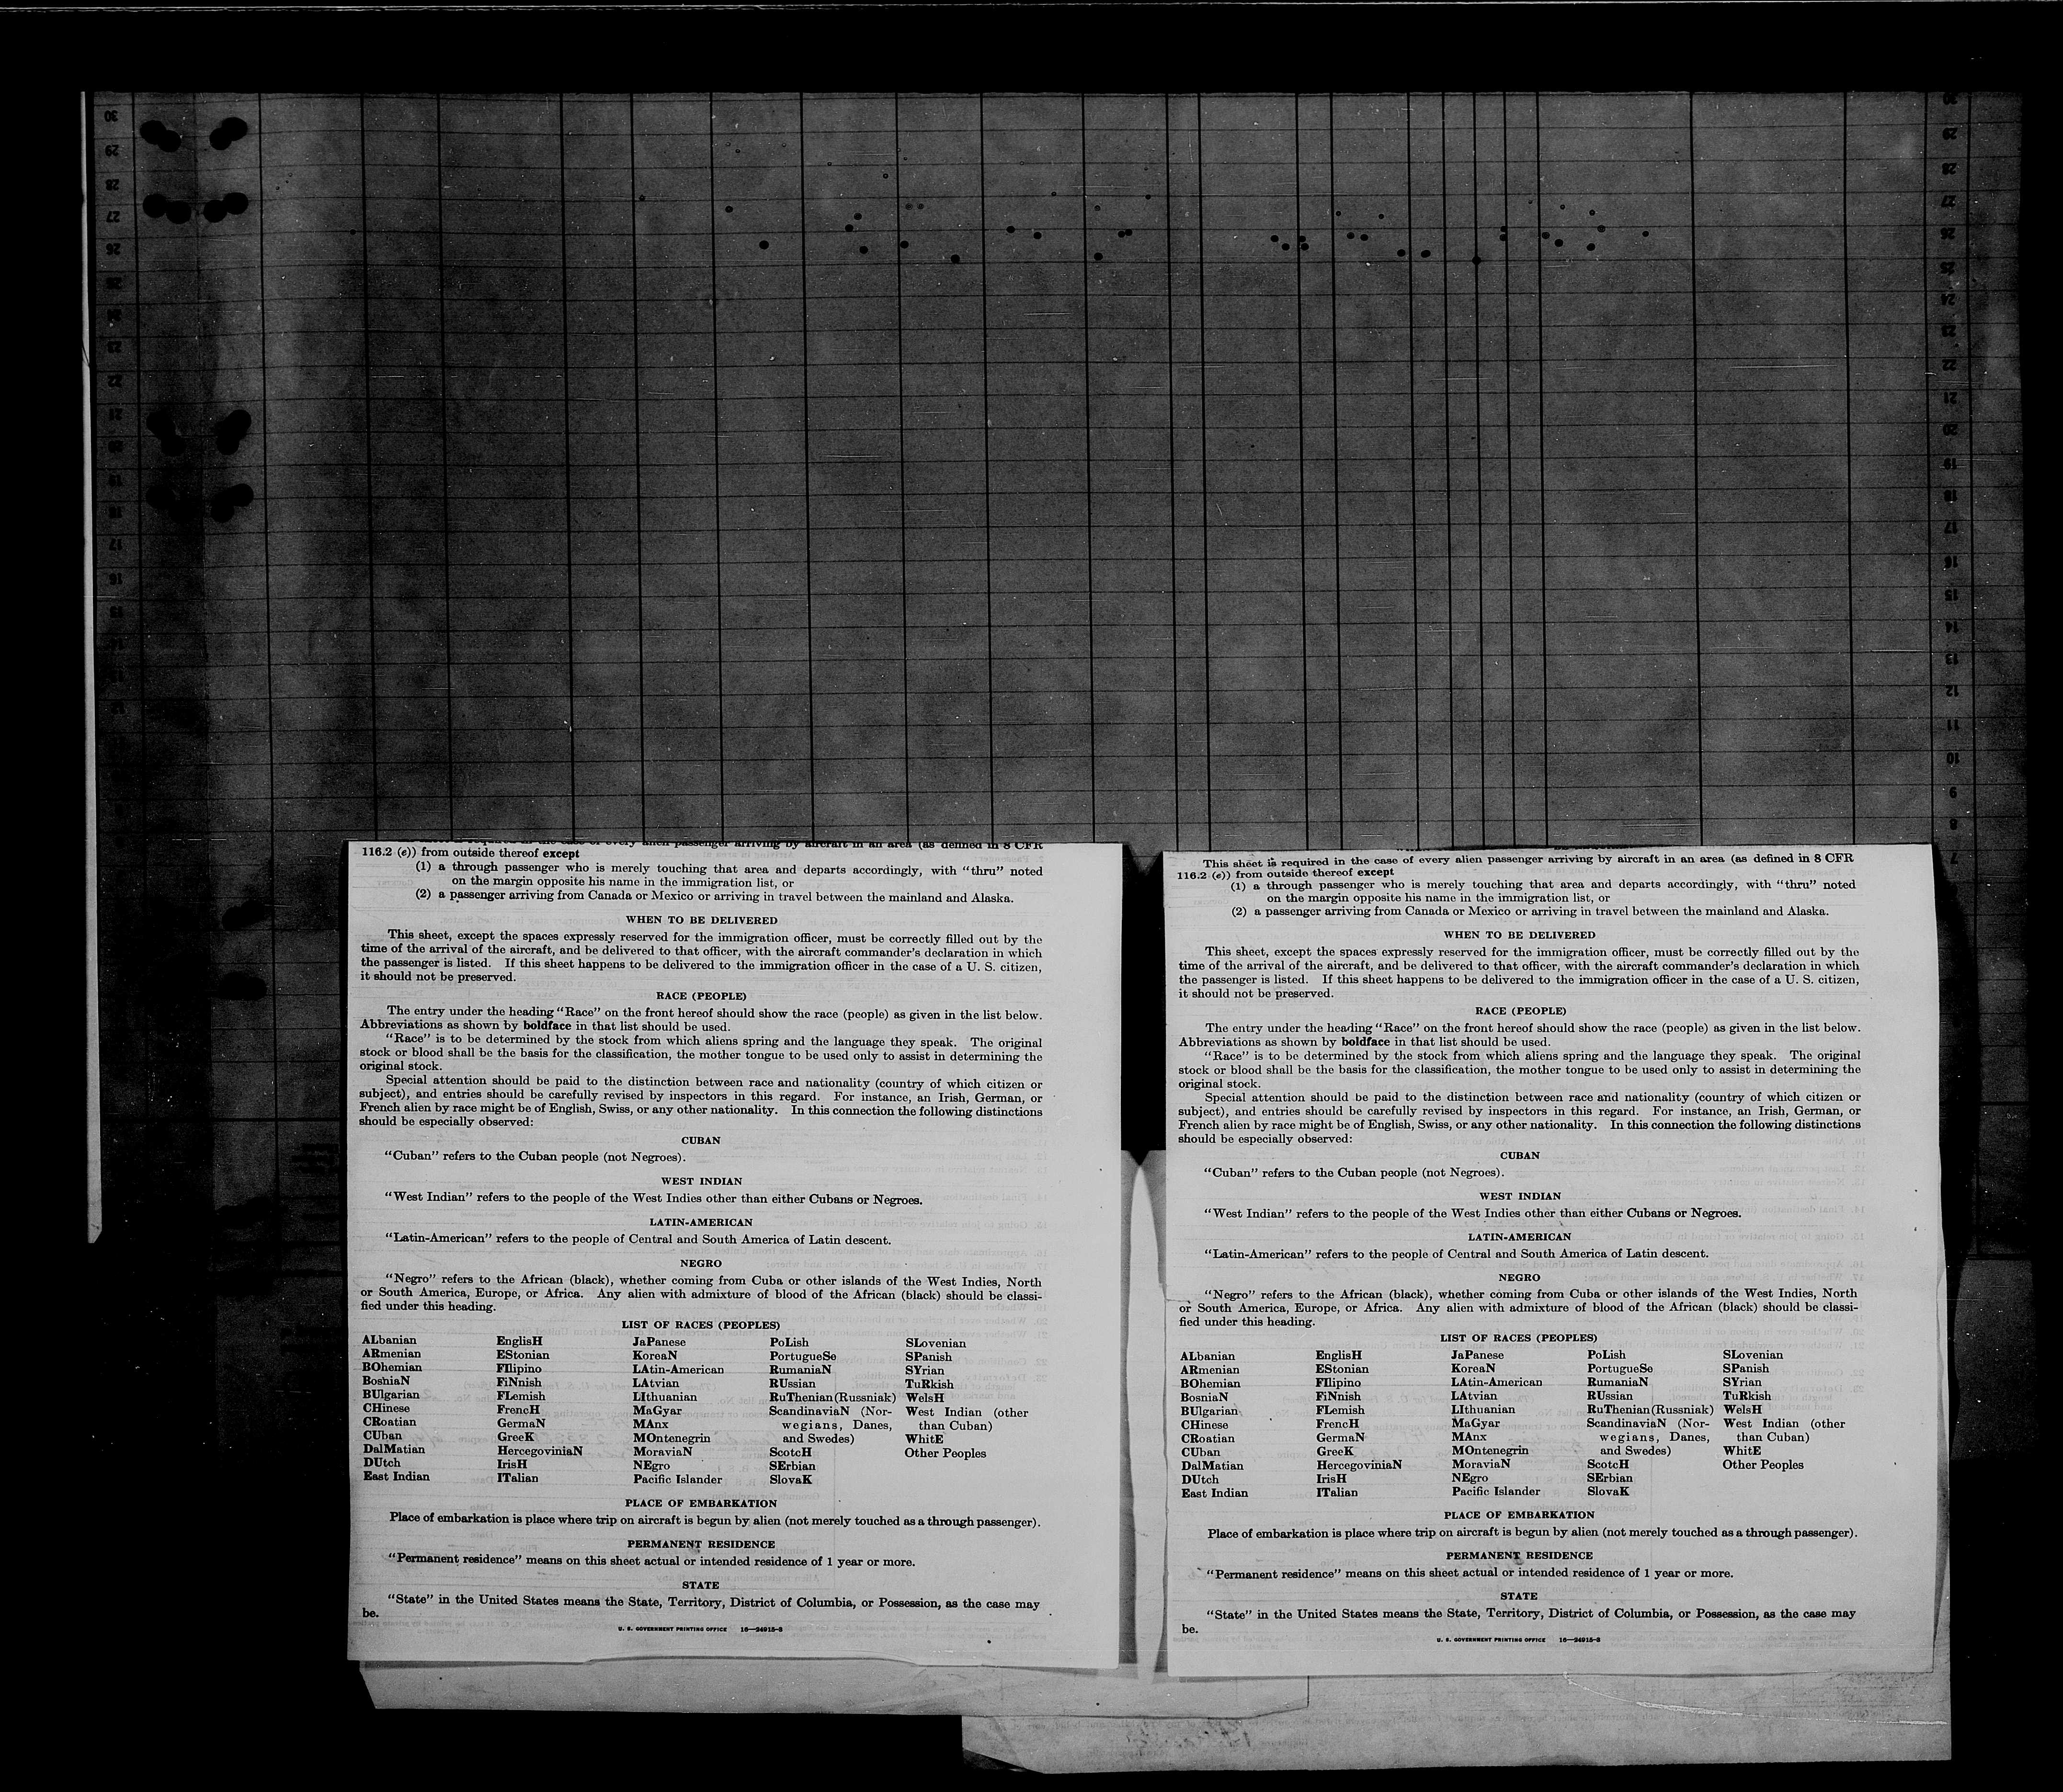 116.2 (e)) from outside thereof except
(1) a through passenger who is merely touching that area and departs accordingly, with “thru” noted
on the margin opposite his name in the immigration list, or
(2) a passenger arriving from Canada or Mexico or arriving in travel between the mainland and Alaska.
WHEN TO BE DELIVERED
This sheet, except the spaces expressly reserved for the immigration officer, must be correctly filled out by the
time of the arrival of the aircraft, and be delivered to that officer, with the aircraft commander’s declaration in which
the passenger is listed. If this sheet happens to be delivered to the immigration officer in the case of a U. S. citizen,
it should not be preserved.
RACE (PEOPLE)
The entry under the heading “Race” on the front hereof should show the race (people) as given in the list below.
Abbreviations as shown by boldface in that list should be used.
“Race” is to be determined by the stock from which aliens spring and the language they speak. The original
stock or blood shall be the basis for the classification, the mother tongue to be used only to assist in determining the
original stock.
Special attention should be paid to the distinction between race and nationality (country of which citizen or
subject), and entries should be carefully revised by inspectors in this regard. For instance, an Irish, German, or
French alien by race might be of English, Swiss, or any other nationality. In this connection the following distinctions
should be especially observed:
CUBAN
“Cuban” refers to the Cuban people (not Negroes).
WEST INDIAN
“West Indian” refers to the people of the West Indies other than either Cubans or Negroes.
LATIN-AMERICAN
“Latin-American” refers to the people of Central and South America of Latin descent.
NEGRO
“Negro” refers to the African (black), whether coming from Cuba or other islands of the West Indies, North
or South America, Europe, or Africa. Any alien with admixture of blood of the African (black) should be classi-
fied under this heading.
LIST OF RACES (PEOPLES)
ALbanian EnglisH JaPanese PoLish SLovenian
ARmenian EStonian KoreaN PortugueSe SPanish
BOhemian FIlipino LAtin-American RumaniaN SYrian
BosniaN FiNnish LAtvian RUssian TuRkish
BUlgarian FLemish LIthuanian RuThenian (Russniak) WelsH
CHinese FrencH MaGyar ScandinaviaN (Nor- West Indian (other
CRoatian GermaN MAnx wegians, Danes, than Cuban)
CUban GreeK MOntenegrin and Swedes) WhitE
DalMatian HercegoviniaN MoraviaN ScotcH Other Peoples
DUtch IrisH NEgro SErbian
East Indian ITalian Pacific Islander SlovaK
PLACE OF EMBARKATION
Place of embarkation is place where trip on aircraft is begun by alien (not merely touched as a through passenger).
PERMANENT RESIDENCE
“Permanent residence” means on this sheet actual or intended residence of 1 year or more.
STATE
“State” in the United States means the State, Territory, District of Columbia, or Possession, as the case may
be.
U. S. GOVERNMENT PRINTING OFFICE 16—24915-3
This sheet is required in the case of every alien passenger arriving by aircraft in an area (as defined in 8 CFR
116.2 (e)) from outside thereof except
(1) a through passenger who is merely touching that area and departs accordingly, with “thru” noted
on the margin opposite his name in the immigration list, or
(2) a passenger arriving from Canada or Mexico or arriving in travel between the mainland and Alaska.
WHEN TO BE DELIVERED
This sheet, except the spaces expressly reserved for the immigration officer, must be correctly filled out by the
time of the arrival of the aircraft, and be delivered to that officer, with the aircraft commander’s declaration in which
the passenger is listed. If this sheet happens to be delivered to the immigration officer in the case of a U. S. citizen,
it should not be preserved.
RACE (PEOPLE)
The entry under the heading “Race” on the front hereof should show the race (people) as given in the list below.
Abbreviations as shown by boldface in that list should be used.
“Race” is to be determined by the stock from which aliens spring and the language they speak. The original
stock or blood shall be the basis for the classification, the mother tongue to be used only to assist in determining the
original stock.
Special attention should be paid to the distinction between race and nationality (country of which citizen or
subject), and entries should be carefully revised by inspectors in this regard. For instance, an Irish, German, or
French alien by race might be of English, Swiss, or any other nationality. In this connection the following distinctions
should be especially observed:
CUBAN
“Cuban” refers to the Cuban people (not Negroes).
WEST INDIAN
“West Indian” refers to the people of the West Indies other than either Cubans or Negroes.
LATIN-AMERICAN
“Latin-American” refers to the people of Central and South America of Latin descent.
NEGRO
“Negro” refers to the African (black), whether coming from Cuba or other islands of the West Indies, North
or South America, Europe, or Africa. Any alien with admixture of blood of the African (black) should be classi-
fied under this heading.
LIST OF RACES (PEOPLES)
ALbanian EnglisH JaPanese PoLish SLovenian
ARmenian EStonian KoreaN PortugueSe SPanish
BOhemian FIlipino LAtin-American RumaniaN SYrian
BosniaN FiNnish LAtvian RUssian TuRkish
BUlgarian FLemish LIthuanian RuThenian (Russniak) WelsH
CHinese FrencH MaGyar ScandinaviaN (Nor- West Indian (other
CRoatian GermaN MAnx wegians, Danes, than Cuban)
CUban GreeK MOntenegrin and Swedes) WhitE
DalMatian HercegoviniaN MoraviaN ScotcH Other Peoples
DUtch IrisH NEgro SErbian
East Indian ITalian Pacific Islander SlovaK
PLACE OF EMBARKATION
Place of embarkation is place where trip on aircraft is begun by alien (not merely touched as a through passenger).
PERMANENT RESIDENCE
“Permanent residence” means on this sheet actual or intended residence of 1 year or more.
STATE
“State” in the United States means the State, Territory, District of Columbia, or Possession, as the case may
be.
U. S. GOVERNMENT PRINTING OFFICE 16—24915-3